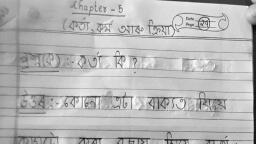 Chapter - 5
(কৰ্তা, কৰ্ম আৰু ক্ৰিয়া)
Date
Page
প্ৰশ্ন(ক) :- কৰ্তা কি ?
উত্তৰ :- কোনো এটা বাক্যত যিয়ে